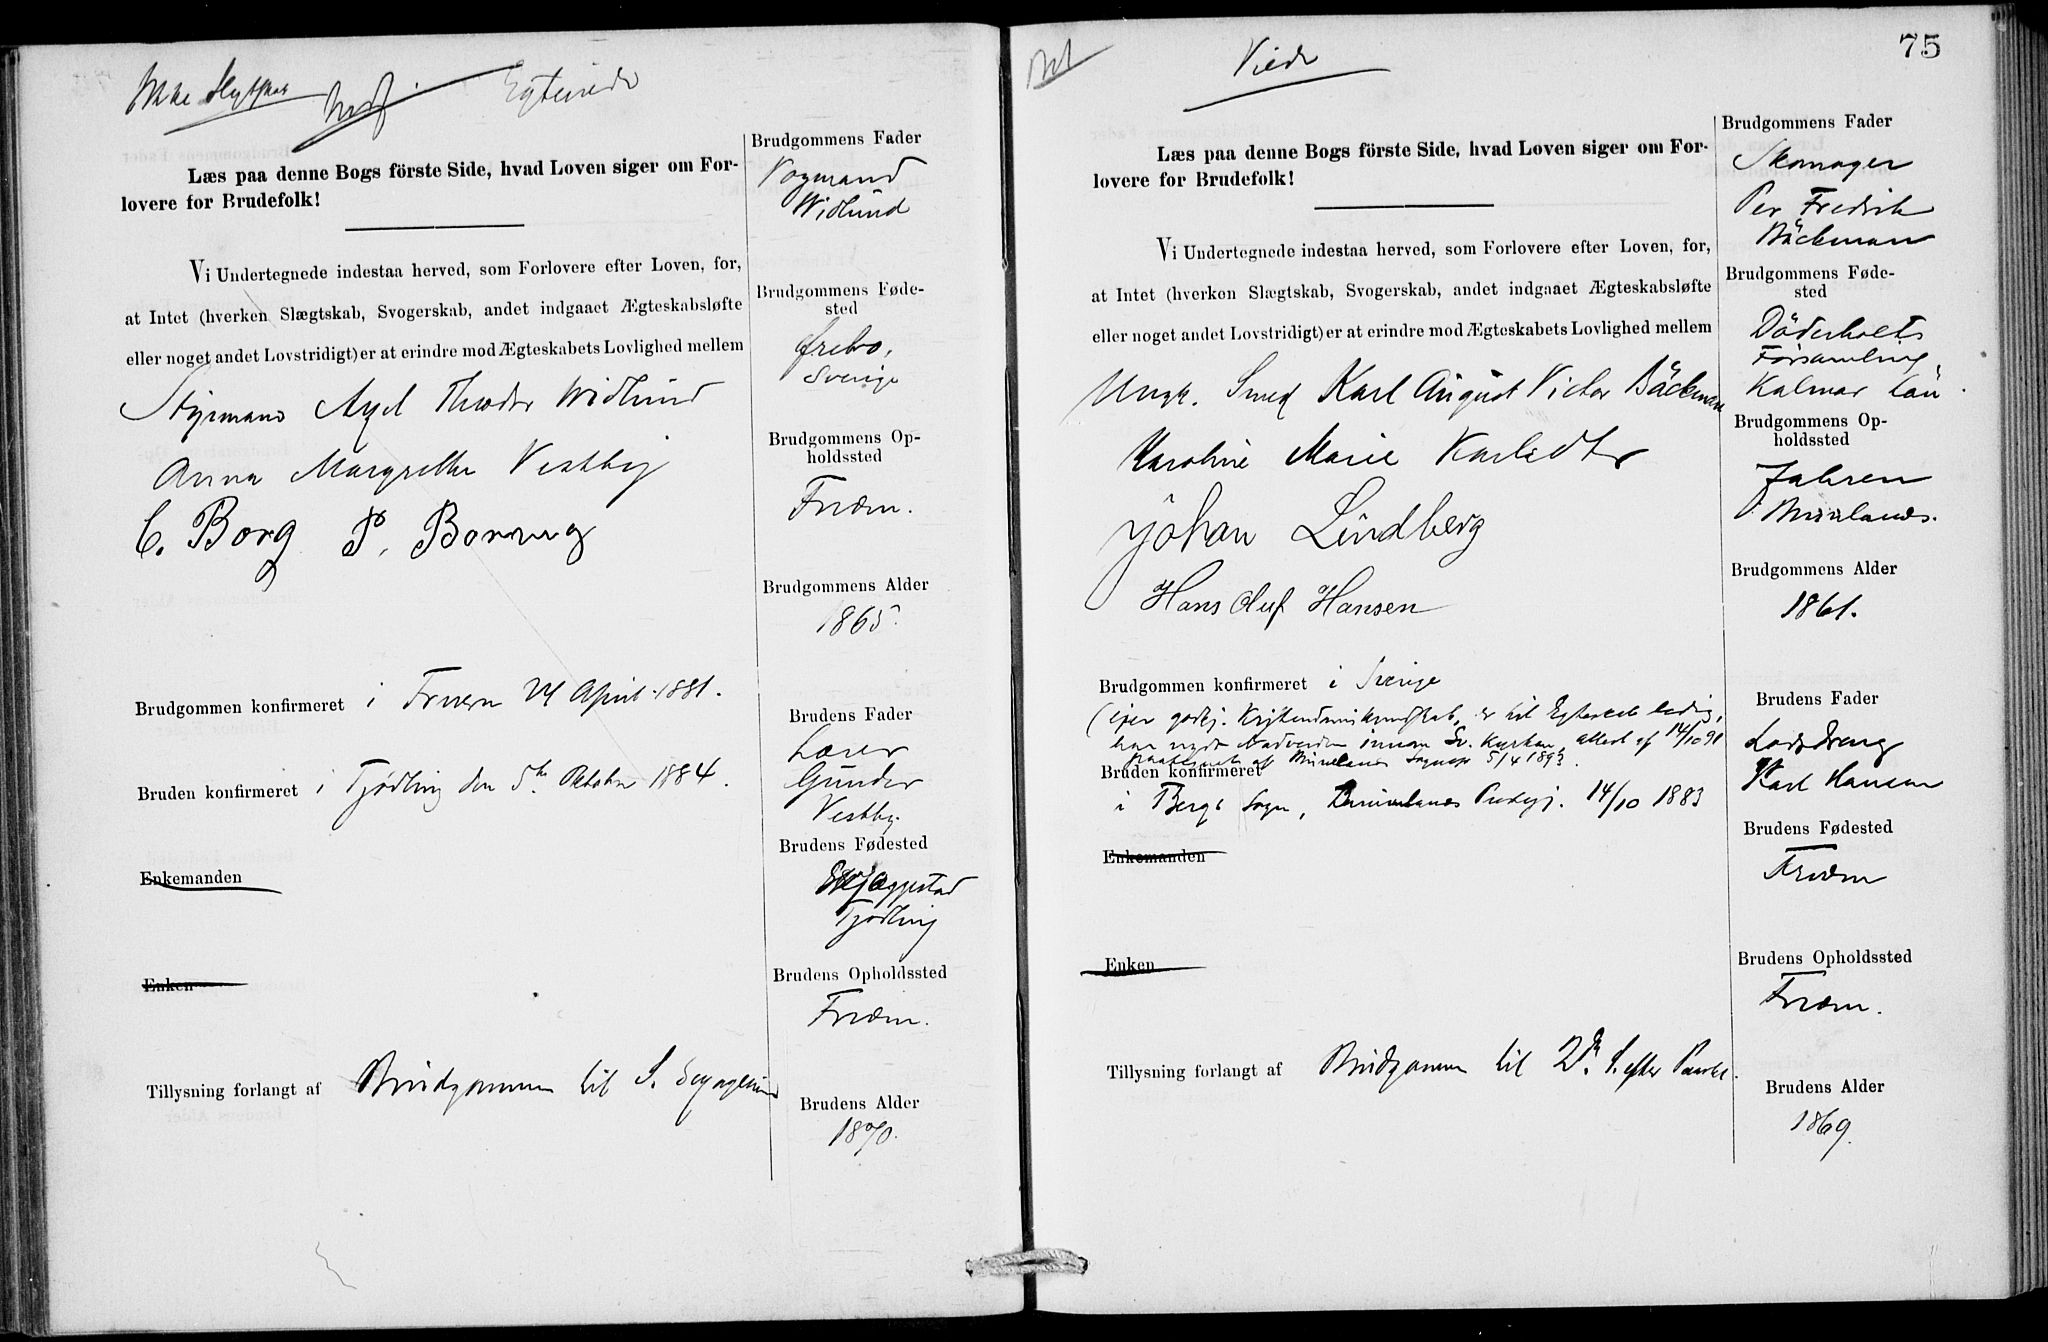 Ikke
Egteviede
Læs paa denne Bogs förste Side, hvad Loven siger om For-
lovere for Brudefolk!
Vi Undertegnede indestaa herved, som Forlovere efter Loven, for,
at Intet (hverken Slægtskab, Svogerskab, andet indgaaet Ægteskabsløfte
eller noget andet Lovstridigt) er at erindre mod Ægteskabets Lovlighed mellem
Styrmand Axel Theodor Widlund
Anna Margrethe Vestby
C. Borg P. Borring
Brudgommen konfirmeret i 24 April 1881.
Bruden konfirmeret i Tjødling den 5te Oktober 1884.
Enkemanden
Enken
Tillysning forlangt af Brudgommen til S. Sexagesima
Brudgommens Fader
Vognmand
Widlund
Brudgommens Føde-
sted
Ørebro,
Sverige
Brudgommens Op-
holdssted
Fredn.
Brudgommens Alder
1865.
Brudens Fader
Lærer
Gunder
Vestby.
Brudens Fødested
Tjødling
Brudens Opholdssted
Brudens Alder
1870.
75
Viede
Læs paa denne Bogs förste Side, hvad Loven siger om For-
lovere for Brudefolk!
Vi Undertegnede indestaa herved, som Forlovere efter Loven, for,
at Intet (hverken Slægtskab, Svogerskab, andet indgaaet Ægteskabsløfte
eller noget andet Lovstridigt) er at erindre mod Ægteskabets Lovlighed mellem
Ungk. Smed Karl August Victor Bäckman
Karoline Marie Karlsdtr
Johan Lindberg
Hans Oluf Hansen
Brudgommen konfirmeret i Sverige
(ejer godkj. Kristendomskundskab, er til Egteskab ledig,
har nydt Nadverden innom Sv. Kyrkan, attest af 14/10 91
af Sognepr 5/4 1893.
Bruden konfirmeret
i Bergs Sogn, Brunlanes Prestgj. 14/10 1883
Enkemanden
Enken
Tillysning forlangt af Brudgommen til 2den S. efter Paaske.
Brudgommens Fader
Skomager
Per Fredrik
Bäckman
Brudgommens Føde-
sted
Döderhults
Församling
Kalmar Län.
Brudgommens Op-
holdssted
Jahren
Brunlanes.
Brudgommens Alder
1861.
Brudens Fader
Lodsdreng
Karl Hansen
Brudens Fødested
Brudens Opholdssted
Brudens Alder
1869.